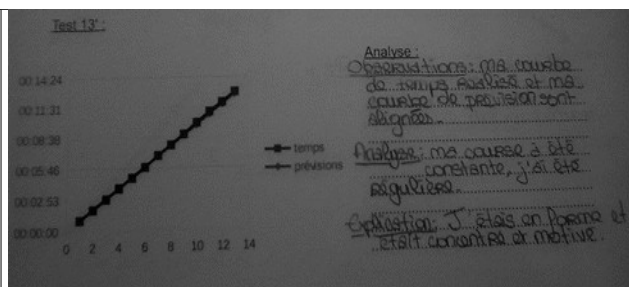 Test 13' :
00:14:24
00:11:31
00:08:38
00:05:46
00:02:53
00:00:00
0 2 4 6 8 10 12 14
temps
prévisions
Analyse :
Observations : ma courbe
de temps réalisé et ma
courbe de prévision sont
alignées.
Analyse : ma course a été
constante, j'ai été
régulière.
Explication : J'étais en forme et
était concentré et motivé.